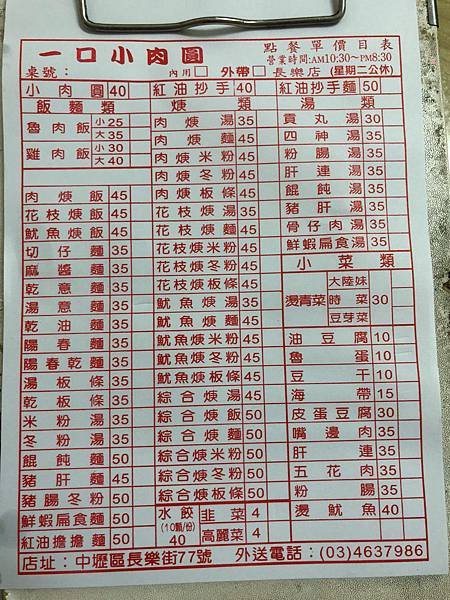 一口小肉圓
點餐單價目表
營業時間:AM10:30~PM8:30
桌號: 內用□ 外帶□ 長樂店 (星期二公休)
小肉圓 40 紅油抄手 40 紅油抄手麵 50
飯麵類
魯肉飯 小25 大35
雞肉飯 小30 大40
肉焿飯 45
花枝焿飯 45
魷魚焿飯 45
切仔麵 35
麻醬麵 35
乾意麵 35
湯意麵 35
乾油麵 35
陽春麵 35
陽春乾麵 35
湯板條 35
乾板條 35
米粉湯 35
冬粉湯 35
餛飩麵 50
豬肝麵 45
豬腸冬粉 50
鮮蝦扁食麵 50
紅油擔擔麵 50
焿類
肉焿湯 35
肉焿麵 45
肉焿米粉 45
肉焿冬粉 45
肉焿板條 45
花枝焿湯 35
花枝焿麵 45
花枝焿米粉 45
花枝焿冬粉 45
花枝焿板條 45
魷魚焿湯 35
魷魚焿麵 45
魷魚焿米粉 45
魷魚焿冬粉 45
魷魚焿板條 45
綜合焿湯 45
綜合焿飯 50
綜合焿麵 50
綜合焿米粉 50
綜合焿冬粉 50
綜合焿板條 50
水餃 (10顆/份) 40
韭菜 4
高麗菜 4
湯類
貢丸湯 30
四神湯 35
粉腸湯 35
肝連湯 35
餛飩湯 35
豬肝湯 35
骨仔肉湯 35
鮮蝦扁食湯 35
小菜類
燙青菜 大陸妹 時菜 豆芽菜 30
油豆腐 10
魯蛋 10
豆干 10
海帶 15
皮蛋豆腐 30
嘴邊肉 35
肝連 35
五花肉 35
粉腸 35
燙魷魚 40
店址:中壢區長樂街77號 外送電話:(03)4637986